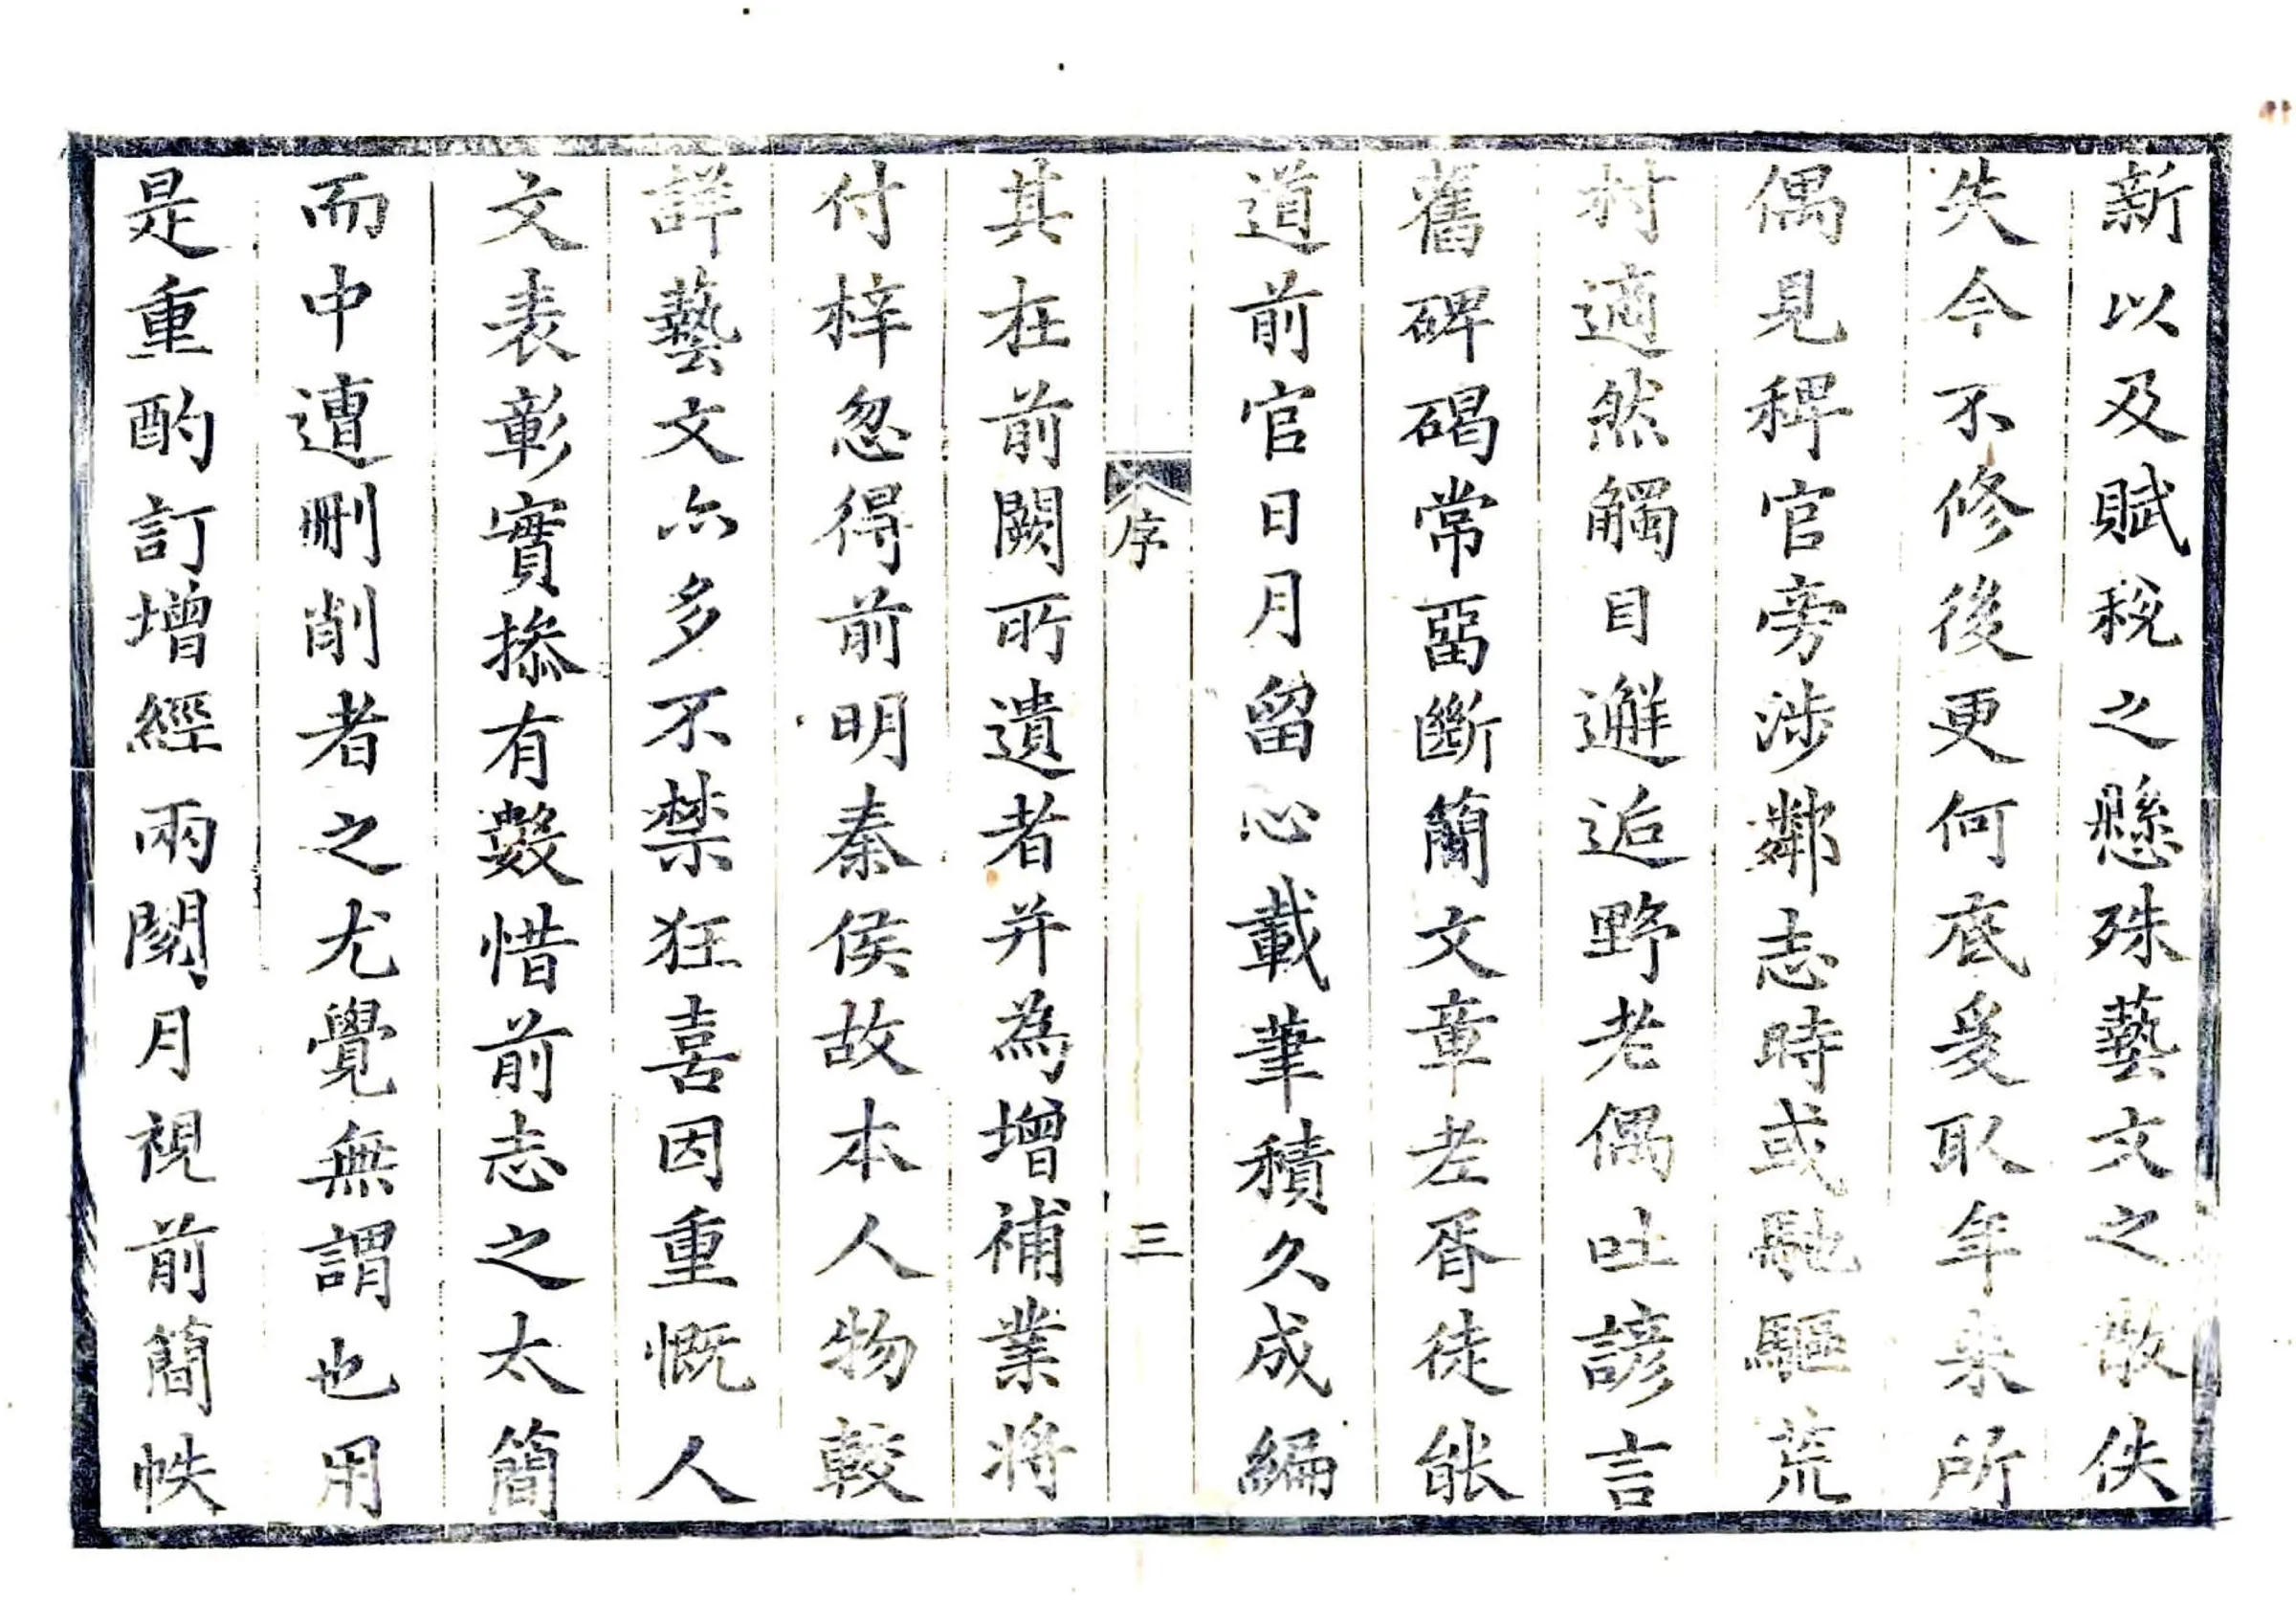 新以及賦稅之懸殊藝文之散佚
失今不修後更何底爰取年来所
偶見稗官旁涉鄰志時或馳驅荒
村適然觸目邂逅野老偶吐諺言
舊碑碣常畱斷簡文章老胥徒能
道前官日月留心載筆積久成編
序
三
其在前闕所遺者并為增補業將
付梓忽得前明秦侯故本人物較
詳藝文亦多不禁狂喜因重慨人
文表彰實摻有數惜前志之太簡
而中遭刪削者之尤覺無謂也用
是重酌訂增經兩閱月視前簡帙